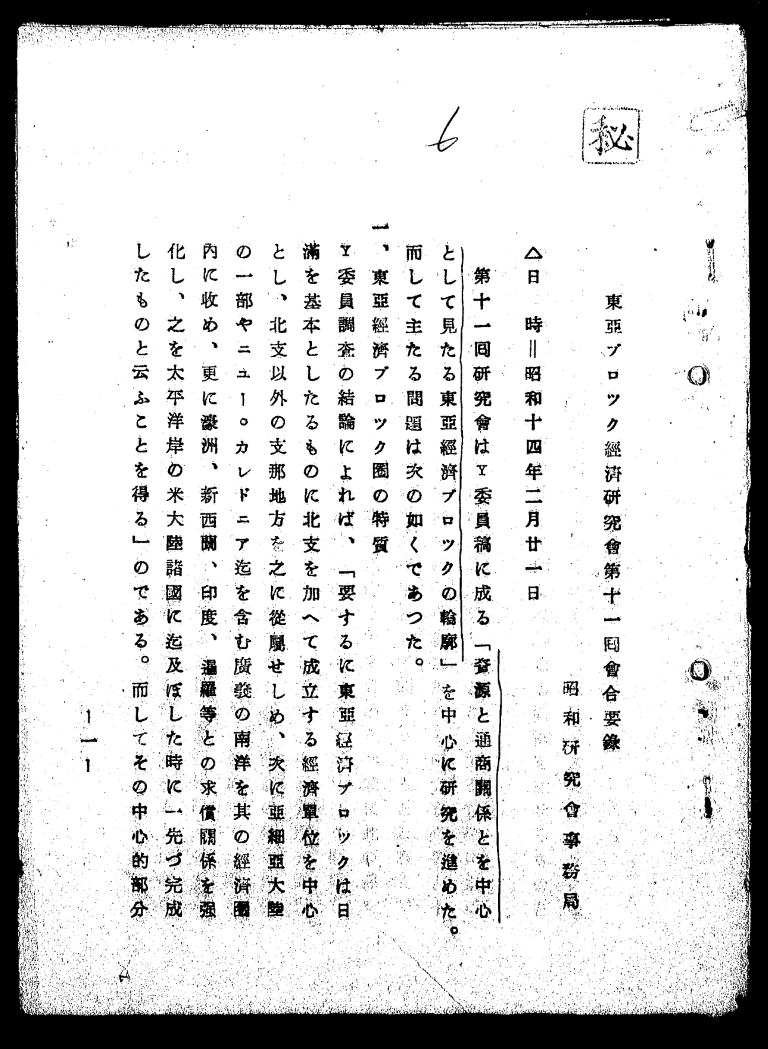 秘
6
東亞ブロツク經濟研究會第十一回會合要錄
昭和研究會事務局
△日　時＝昭和十四年二月廿一日
第十一回研究會はY委員稿に成る「資源と通商關係とを中心
として見たる東亞經濟ブロツクの輪廓」を中心に研究を進めた。
而して主たる問題は次の如くであつた。
一、東亞經濟ブロツク圈の特質
Y委員調査の結論によれば、「要するに東亞經濟ブロツクは日
滿を基本としたるものに北支を加へて成立する經濟單位を中心
とし、北支以外の支那地方を之に從屬せしめ、次に亞細亞大陸
の一部やニユー。カレドニア迄を含む廣義の南洋を其の經濟圈
內に收め、更に濠洲、新西蘭、印度、暹羅等との求償關係を强
化し、之を太平洋岸の米大陸諸國に迄及ぼした時に一先づ完成
したものと云ふことを得る」のである。而してその中心的部分
—一—